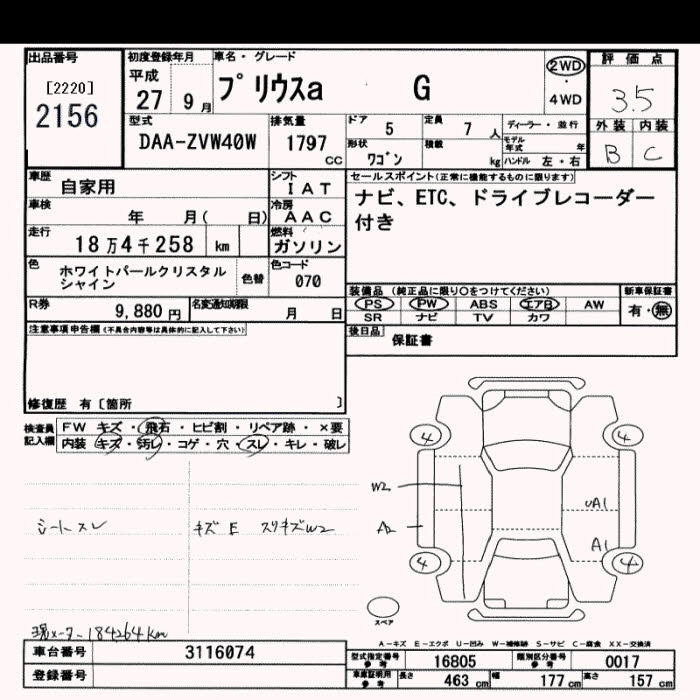 出品番号
[2220]
2156
初度登録年月
平成
27 9月
車名・グレード
プリウスa G
2WD
・
4WD
評価点
3.5
外装 内装
B C
型式
DAA-ZVW40W
排気量
1797
CC
ドア 5
定員 7 人
形状 ワゴン
積載 kg
ディーラー・並行
モデル年式 年
ハンドル 左・右
車歴
自家用
シフト
IAT
車検
年 月( 日)
冷房
AAC
走行
18万4千258 km
燃料
ガソリン
色
ホワイトパールクリスタル
シャイン
色替
色コード
070
R券
9,880 円
名変通知期限
月 日
セールスポイント(正常に機能するものに限ります)
ナビ、ETC、ドライブレコーダー
付き
装備品 (純正品に限り○をつけてください)
PS PW ABS エアB AW
SR ナビ TV カワ
新車保証書
有・無
後日品
保証書
注意事項申告欄(不具合内容等は具体的に記入して下さい)
修復歴 有〔箇所 〕
検査員
記入欄
FW キズ・飛石・ヒビ割・リペア跡・×要
内装 キズ・汚レ・コゲ・穴・スレ・キレ・破レ
シートスレ
キズ E スリキズW2
現メーター184264km
4 4
W2
A2
UA1
A1
4 4
スペア
A-キズ E-エクボ U-凹み W-補修跡 S-サビ C-腐食 XX-交換済
車台番号
3116074
登録番号
型式指定番号
参考
16805
類別区分番号
参考
0017
車庫証明用
参考
長さ 463 cm 幅 177 cm 高さ 157 cm